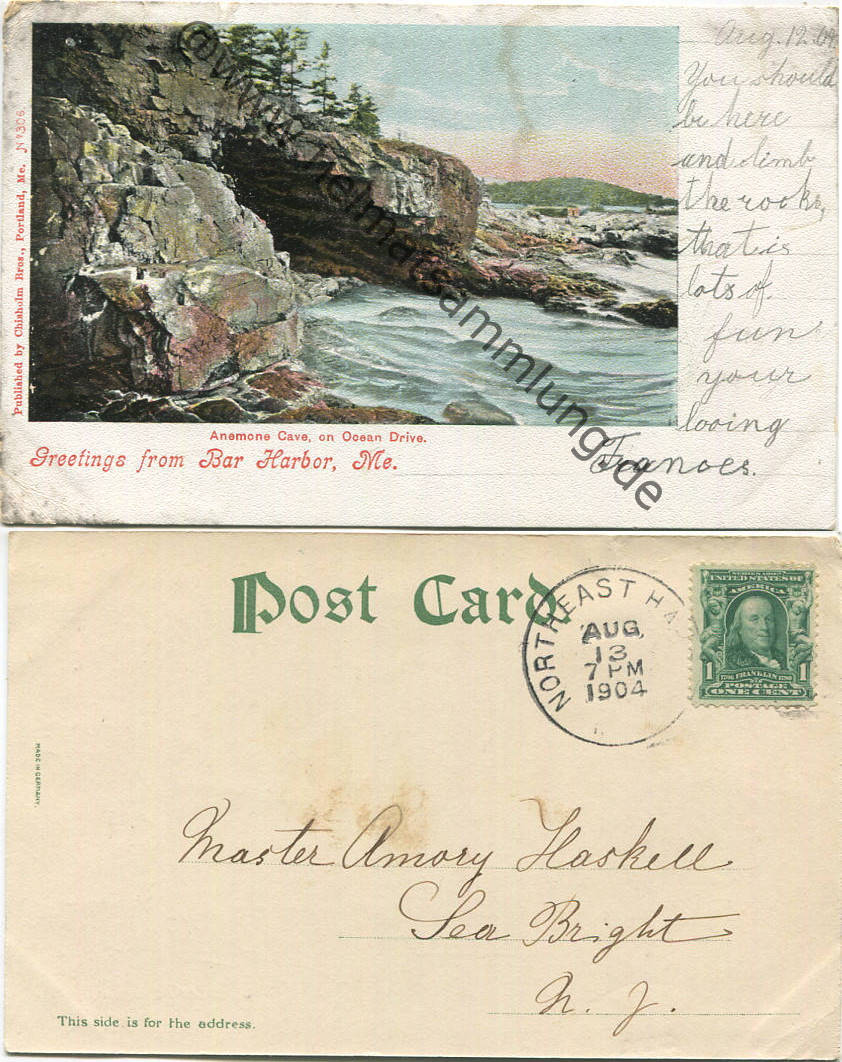 Aug. 12. 04
You should
be here
and climb
the rocks,
that is
lots of
fun
your
loving
Frances.
Published by Chisholm Bros., Portland, Me. No 306
Anemone Cave, on Ocean Drive.
Greetings from Bar Harbor, Me.
@www.heimatsammlung.de
Post Card.
NORTHEAST HA
AUG
13
7 PM
1904
SERIES 1902
UNITED STATES OF
AMERICA
1 1
1706 FRANKLIN 1790
POSTAGE
ONE CENT
MADE IN GERMANY.
Master Amory Haskell
Sea Bright
N. J.
This side is for the address.